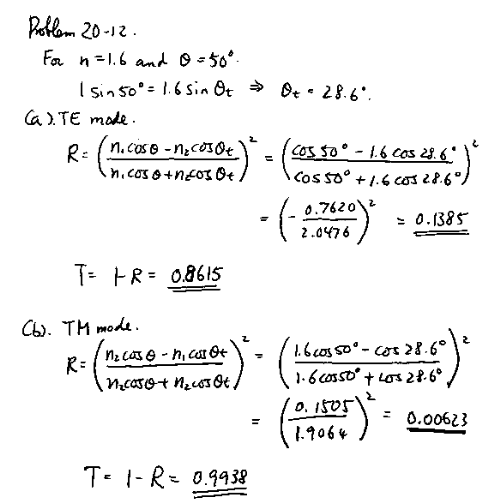 Problem 20-12.
For n=1.6 and θ=50°.
1 sin 50° = 1.6 sin θt ⇒ θt = 28.6°.
(a). TE mode.
R = ((n₁cosθ - n₂cosθt)/(n₁cosθ + n₂cosθt))² = ((cos 50° - 1.6 cos 28.6°)/(cos 50° + 1.6 cos 28.6°))²
= (-0.7620/2.0476)² = 0.1385
T = 1-R = 0.8615
(b). TM mode.
R = ((n₂cosθ - n₁cosθt)/(n₂cosθ + n₂cosθt))² = ((1.6 cos 50° - cos 28.6°)/(1.6 cos 50° + cos 28.6°))²
= (0.1505/1.9064)² = 0.00623
T = 1-R = 0.9938